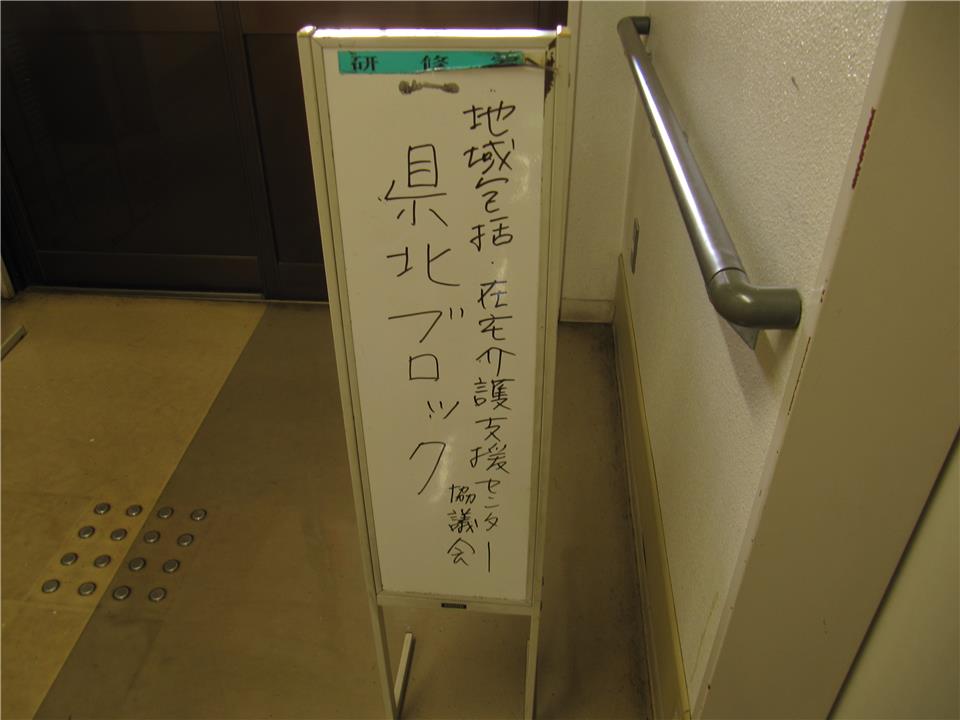 研修室
地域包括・在宅介護支援センター
協議会
県北ブロック